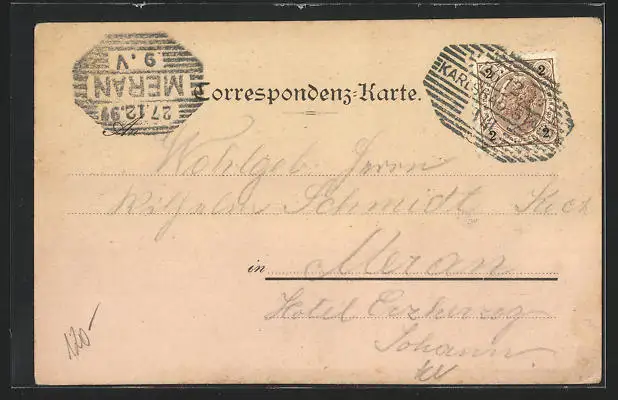 MERAN
27.12.99
9.V
Correspondenz-Karte.
2 2
KARLS
2 2
An
Wohlgeb. Herrn
Wilhelm Schmidt
in Meran
Hotel Erzherzog
Johann
120-